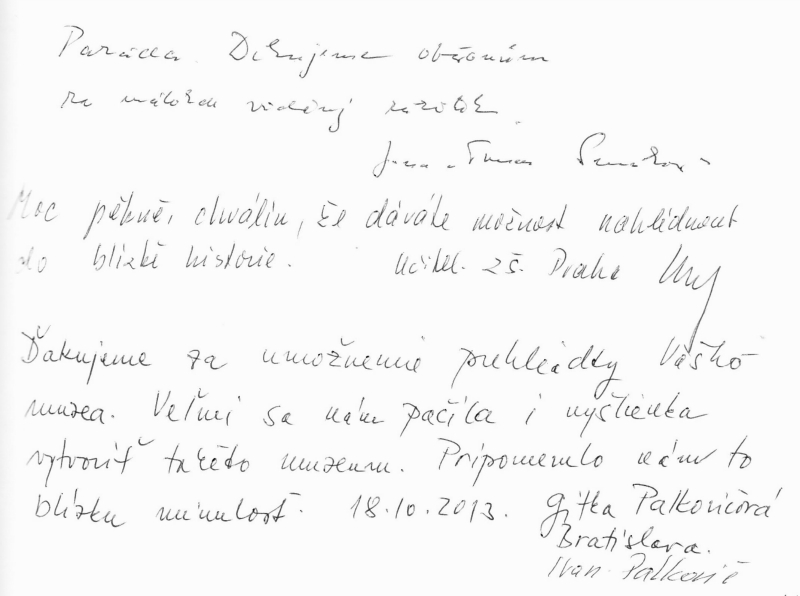 Paráda. Děkujeme občanům
za málokde viděný zážitek.
Jana
Moc pěkné, chválím, že dáváte možnost nahlédnout
do blízké historie. Učitel. ZŠ. Praha
Ďakujeme za umožnenie prehliadky Vášho
muzea. Veľmi sa nám páčila i myšlienka
vytvoriť takéto muzeum. Pripomenulo nám to
blízku minulosť. 18.10.2013. Gitka Palkovičová
Bratislava.
Ivan Palkovič